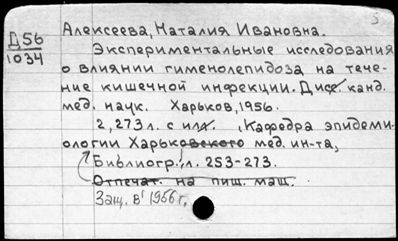 5
Д56
1034
Алексеева, Наталия Ивановна.
Экспериментальные исследования
о влиянии гименолепидоза на тече-
ние кишечной инфекции. Дисс. канд.
мед. наук. Харьков, 1956.
2, 273 л. с илл. , Кафедра эпидеми-
ологии Харьковского мед. ин-та,
Библиогр: л. 253-273.
Отпечат. на пиш. маш.
Защ. в 1956 г.